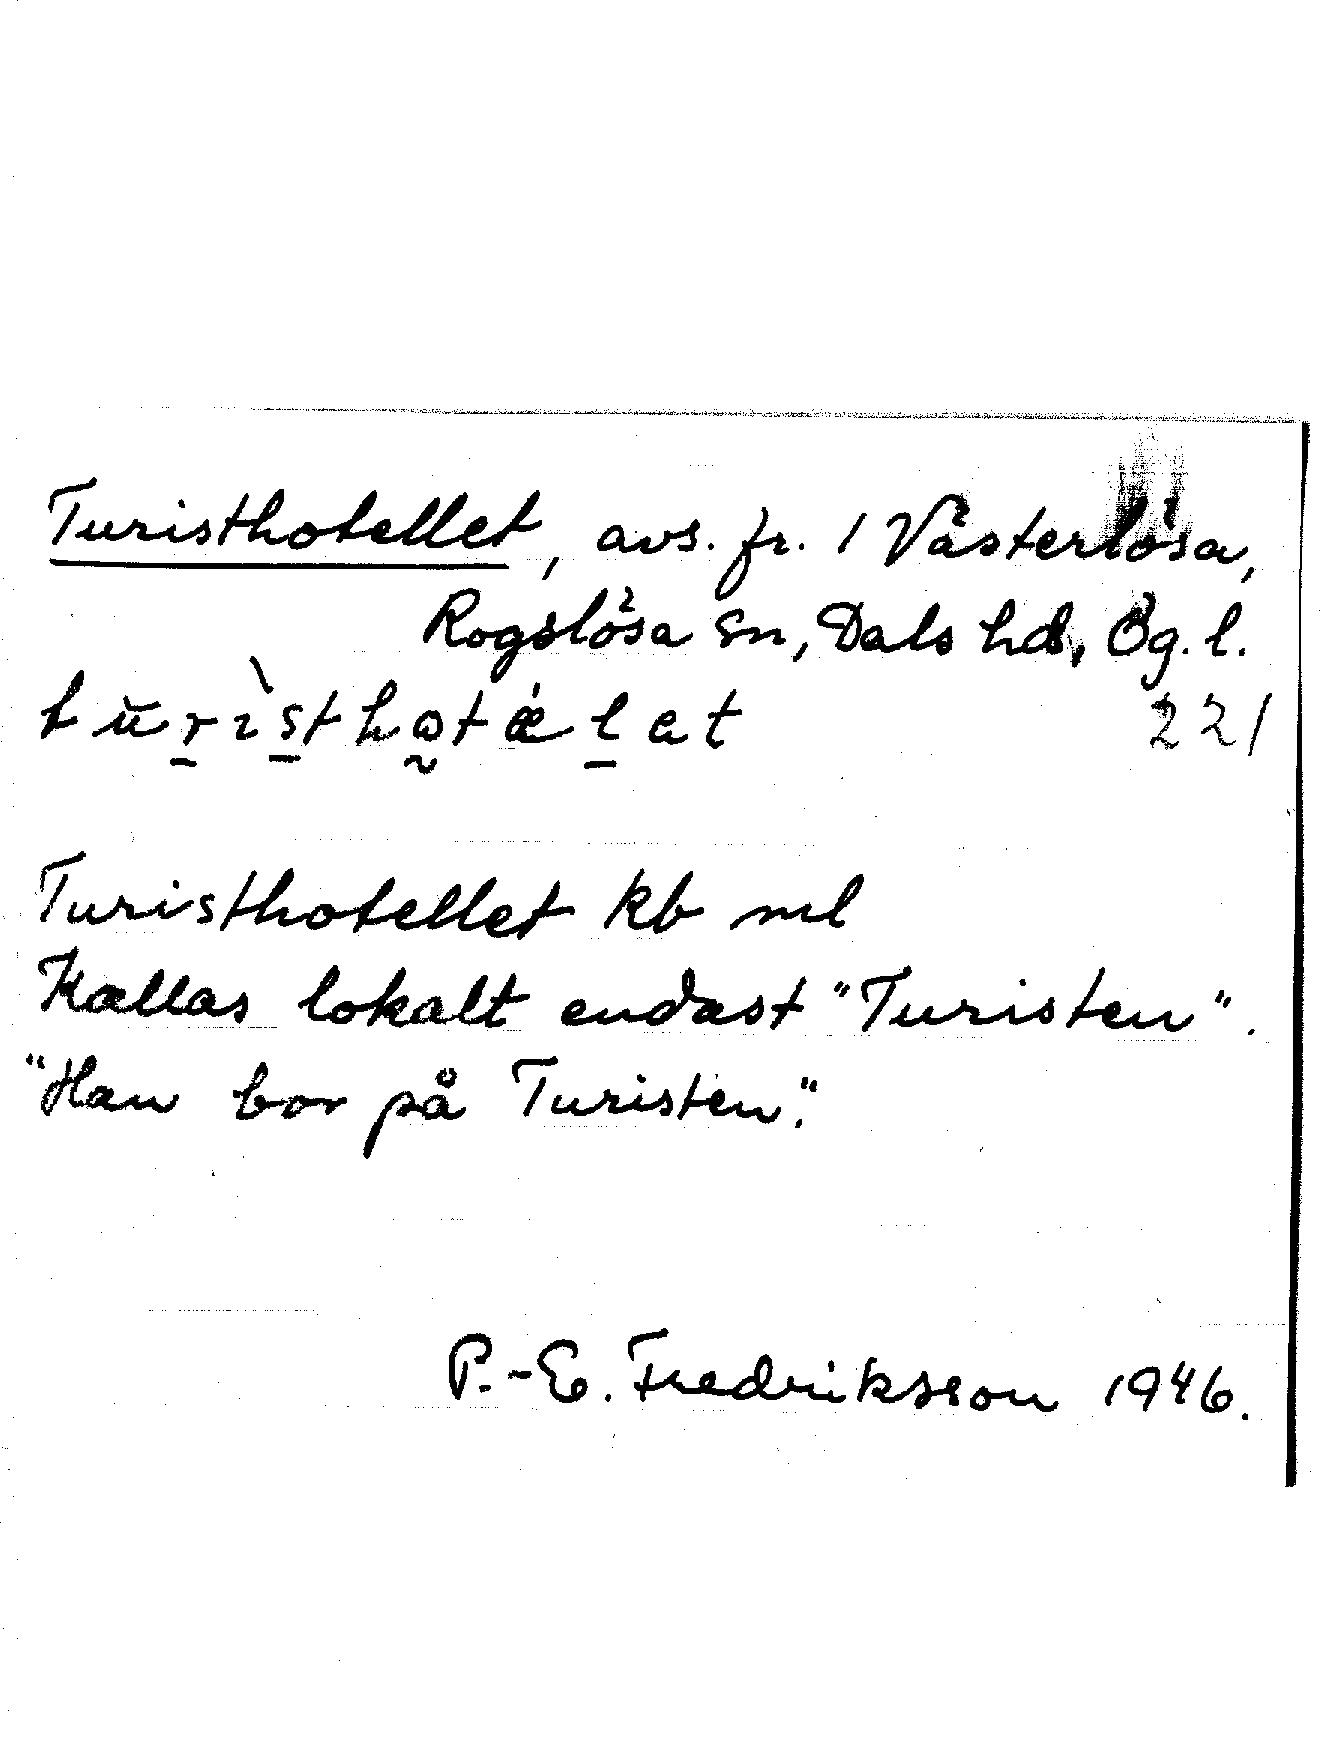 Turisthotellet, avs. fr. 1 Västerlösa,
Rogslösa sn, Dals hd, Ög. l.
221
Turisthotellet kb ml
Kallas lokalt endast "Turisten".
"Han bor på Turisten".
P.-E. Fredriksson 1946.